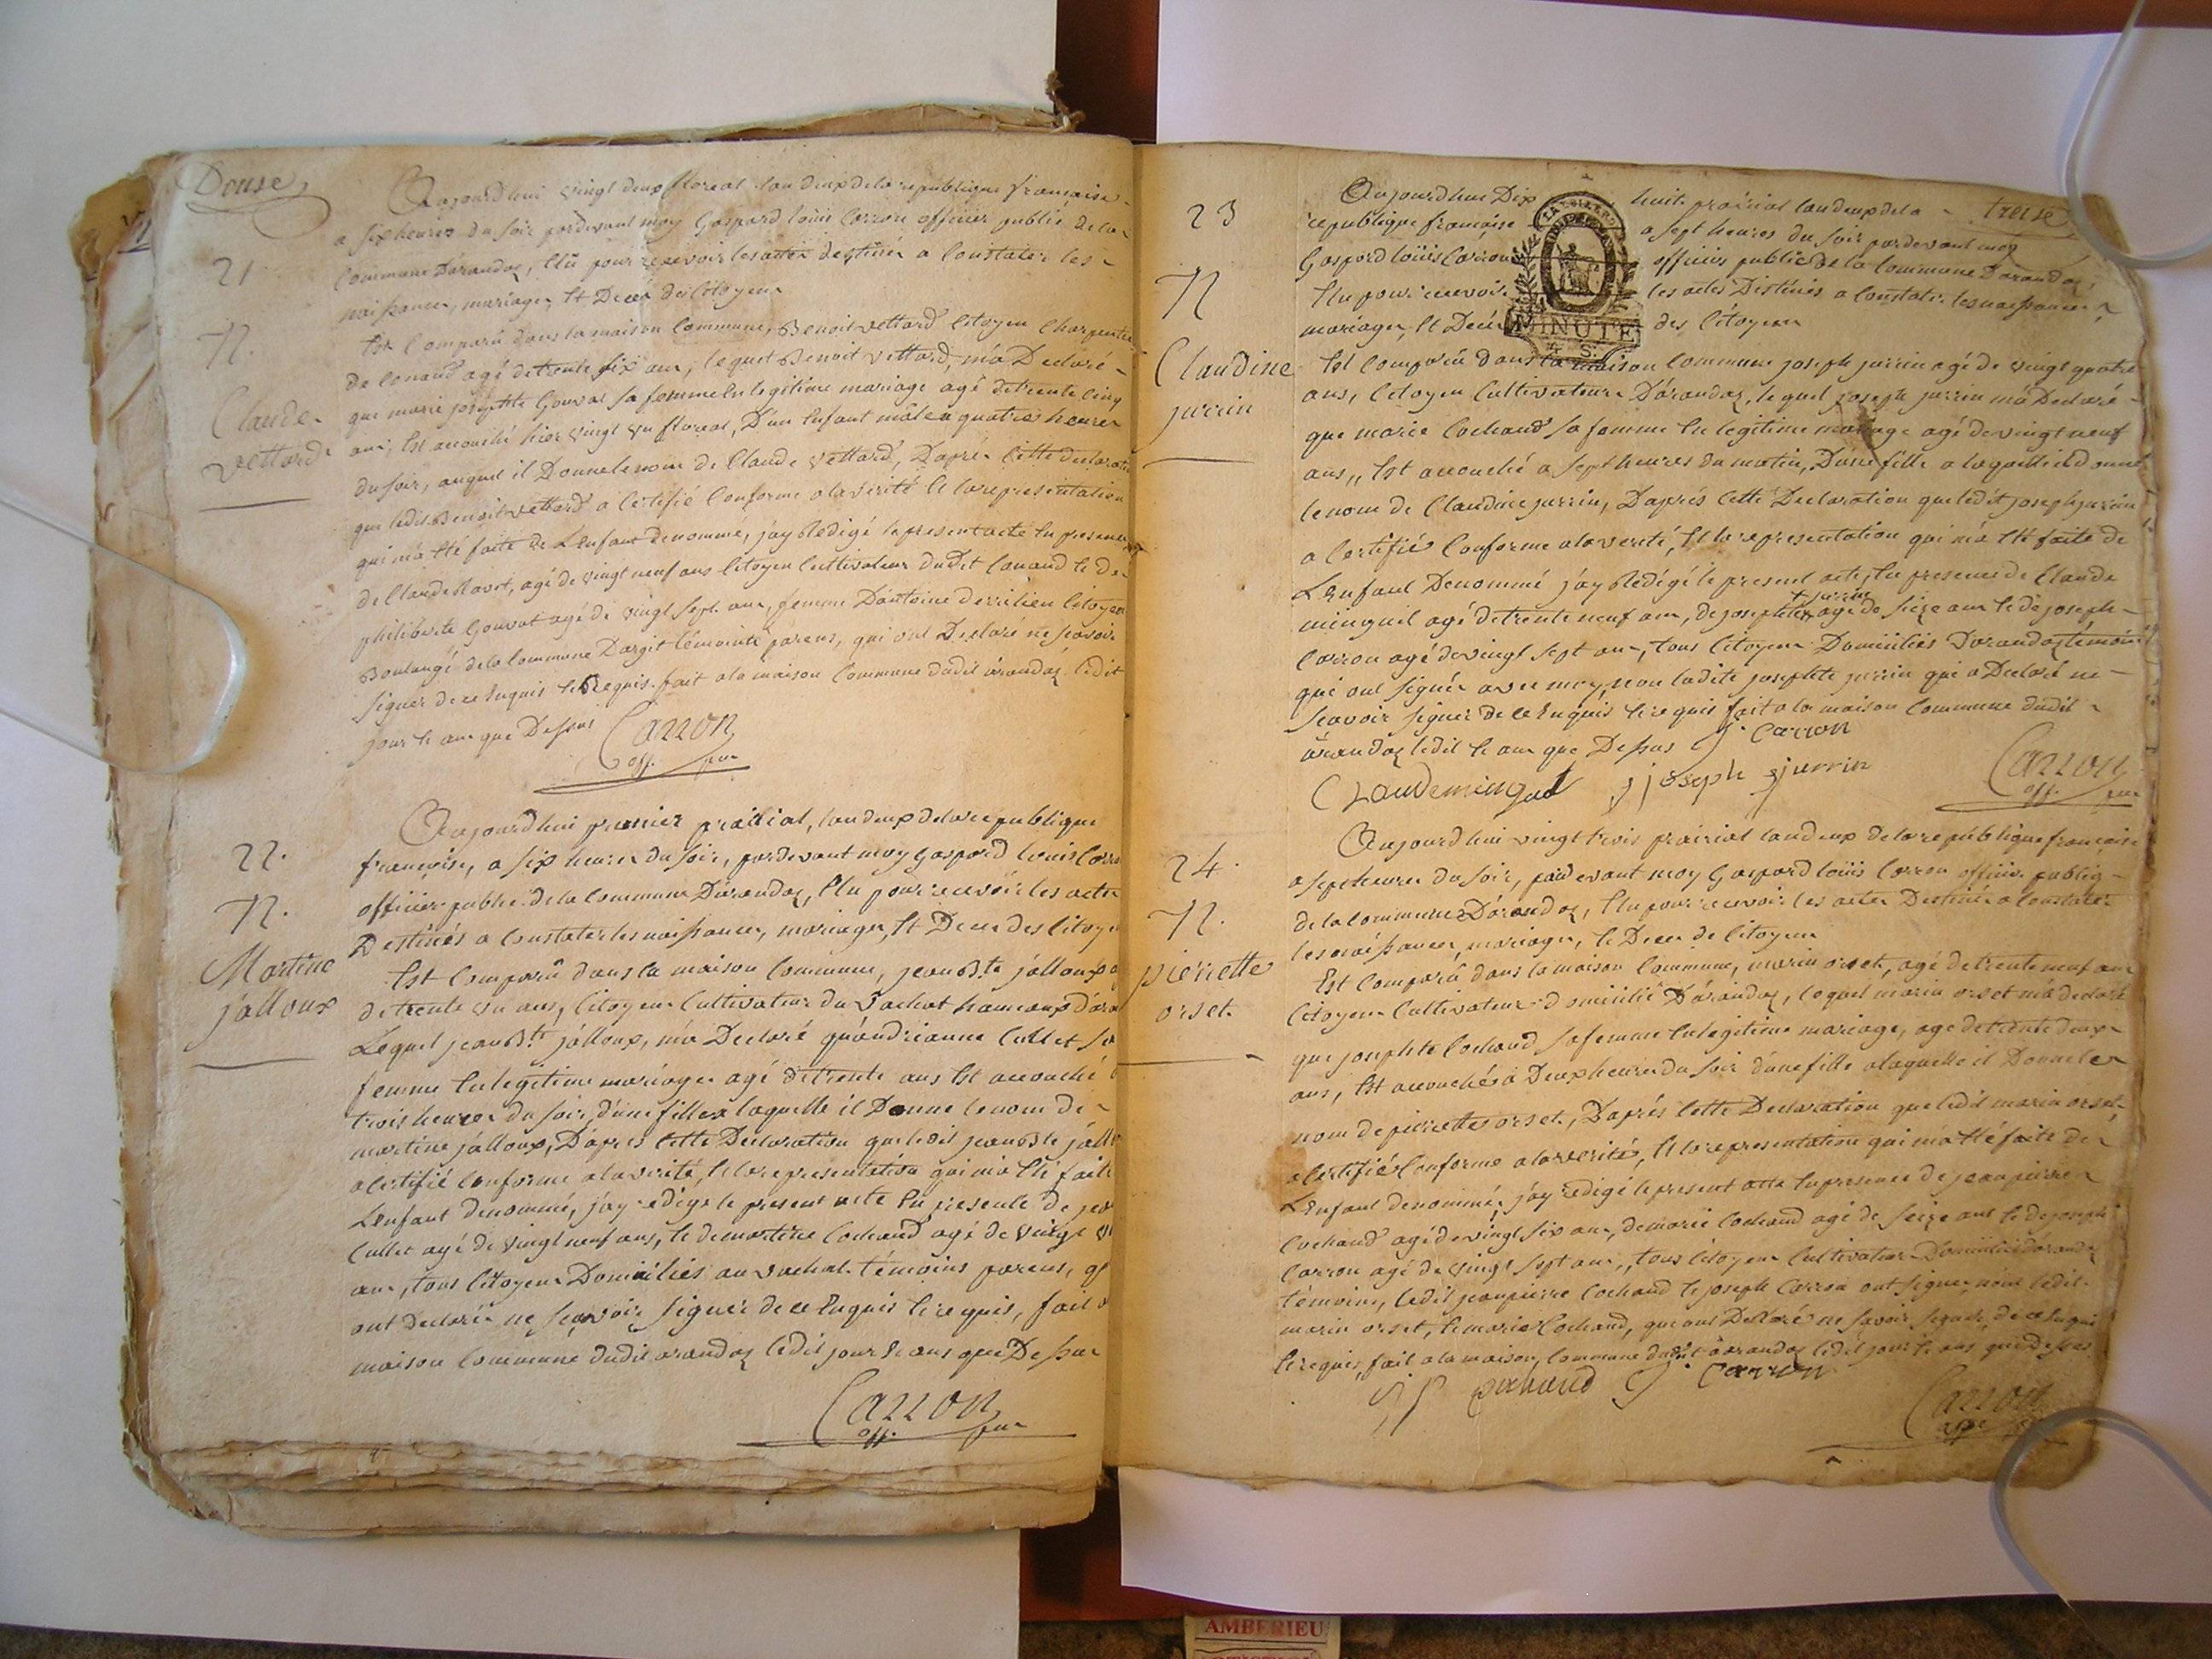 Douse
21
N.
Claude
vettard
Aujourdhui vingt deux floreal lan deux de la republique francaise
a six heures du soir pardevant moy Gaspard loüis Carron officier public de la
Commune Dárandas, Elû pour recevoir les actes destinés a Constater les
naissances, mariages, Et Decés des Citoyens
Est Comparû dans la maison Commune, Benoit vettard Citoyen Charpentier
de Conand agé de trente six ans, lequel Benoit vettard, m'a Declaré
que marie josephte Gouvat sa femme En legitime mariage agé de trente Cinq
ans, Est accouché hier vingt un floreal, D'un Enfant mâle a quatre heures
du soir, auquel il Donne le nom de Claude vettard, D'aprés Cette declaration
que ledit Benoit vettard a Certifié Conforme a la vérité Et la representation
qui m'a Eté faite de L'enfant denommé, j'ay Redigé le present acte En presence
de Claude Ravot, agé de vingt neuf ans Citoyen Cultivateur dudit Conand Et de
philiberte Gouvat agé de vingt sept ans, femme D'antoine derrilieu Citoyen
Boulangé de la Commune Dargit témoins parens, qui ont Declaré ne sçavoir
signer de ce Enquis Et Requis. fait a la maison Commune dudit àrandas ledit
jour Et an que Dessus Carron
off. pu
22.
N.
Martine
jalloux
Aujourdhui premier prairial, lan deux de la republique
francoise, a six heures du soir, pardevant moy Gaspard louis Carron
officier public de la Commune Dárandas, Elu pour recevoir les actes
Destinés a Constater les naissances, mariages, Et Deces des Citoyens
Est Comparû dans la maison Commune, jean B.te jalloux a
de trente un ans, Citoyen Cultivateur du vachat hameaux d'aran
Lequel jean B.te jalloux, m'a Declaré qu'andrianne Cullet sa
femme En legitime mariage agé de trente ans Est accouché
trois heures du soir, d'une fille a laquelle il Donne le nom de
martine jalloux, D'aprés Cette Declaration que ledit jean B.te jallo
a Certifié Conforme a la verité, Et la representation qui m'a Eté faite
L'enfant denommé, j'ay redigé le present acte En presence de jea
Cullet agé de vingt neuf ans, Et de martine Cochand agé de vingt
ans, tous Citoyens Domiciliés au vachat témoins parens, q
ont declaré ne sçavoir signer de ce Enquis Et requis, fait a
maison Commune dudit arandas ledit jour Et ans que Dessus
Carron
off. pu
treise
23
N
Claudine
jurrin
Aujourdhui Dix huit prairial lan deux de la
republique francoise a sept heures du soir pardevant moy
Gaspard loüis Carron officier public de la Commune Darandas,
Elu pour recevoir les actes Destinés a Constater les naissances,
mariages, Et Decés des Citoyens
MINUTE
4 S.
Est Comparû dans la maison Commune joseph jurrin agé de vingt quatre
ans, Citoyen Cultivateur Dárandas, lequel joseph jurrin m'a Declaré
que marie Cochand sa femme En legitime mariage agé de vingt neuf
ans, Est accouché a sept heures du matin, D'une fille a laquelle il donne
le nom de Claudine jurrin, D'aprés Cette Declaration que ledit joseph jurrin
a Certifié Conforme a la verité, Et la representation qui m'a Eté faite de
L'Enfant Denommé j'ay Redigé le present acte, En presence de Claude
minguil agé de trente neuf ans, de josephte jurrin agé de seize ans Et de joseph
Carron agé de vingt sept ans, tous Citoyens Domiciliés Darandas témoins
qui ont signés avec moy, non ladite josephte jurrin qui a Declaré ne
sçavoir signer de ce Enquis Et requis fait a la maison Commune dudit
àrandas ledit Et an que Dessus J. Carron
Claude minguet joseph jurrin Carron
off. pu
24.
N.
pierrette
orset.
Aujourdhui vingt trois prairial lan deux de la republique francaise
a sept heures du soir, pardevant moy Gaspard loüis Carron officier public
de la Commune Dárandas, Elu pour recevoir les actes Destinés a Constater
les naissances, mariages, Et Deces de Citoyens
Est Comparû dans la maison Commune, marin orset, agé de trente neuf ans
Citoyen Cultivateur domicilié Dárandas, lequel marin orset m'a declaré
que josephte Cochand sa femme En legitime mariage, agé de trente deux
ans, Est accouchés a Deux heures du soir d'une fille a laquelle il Donne le
nom de pierrette orset, D'aprés Cette Declaration que ledit marin orset
a Certifiés Conforme a la verité, Et la representation qui m'a Eté faite de
L'Enfant denommé, j'ay redigé le present acte En presence de jean pierre
Cochand agé de vingt six ans, de marie Cochand agé de seize ans Et de joseph
Carron agé de vingt sept ans, tous Citoyens Cultivateurs Domiciliés dárandas
témoins, ledit jean pierre Cochand Et joseph Carron ont signés, non ledit
marin orset, Et marie Cochand, qui ont Declaré ne sçavoir signer de ce Enquis
Et requis, fait a la maison Commune dudit àrandas ledit jour Et ans que dessus
J P cochand J. Carron
Carron
AMBERIEU